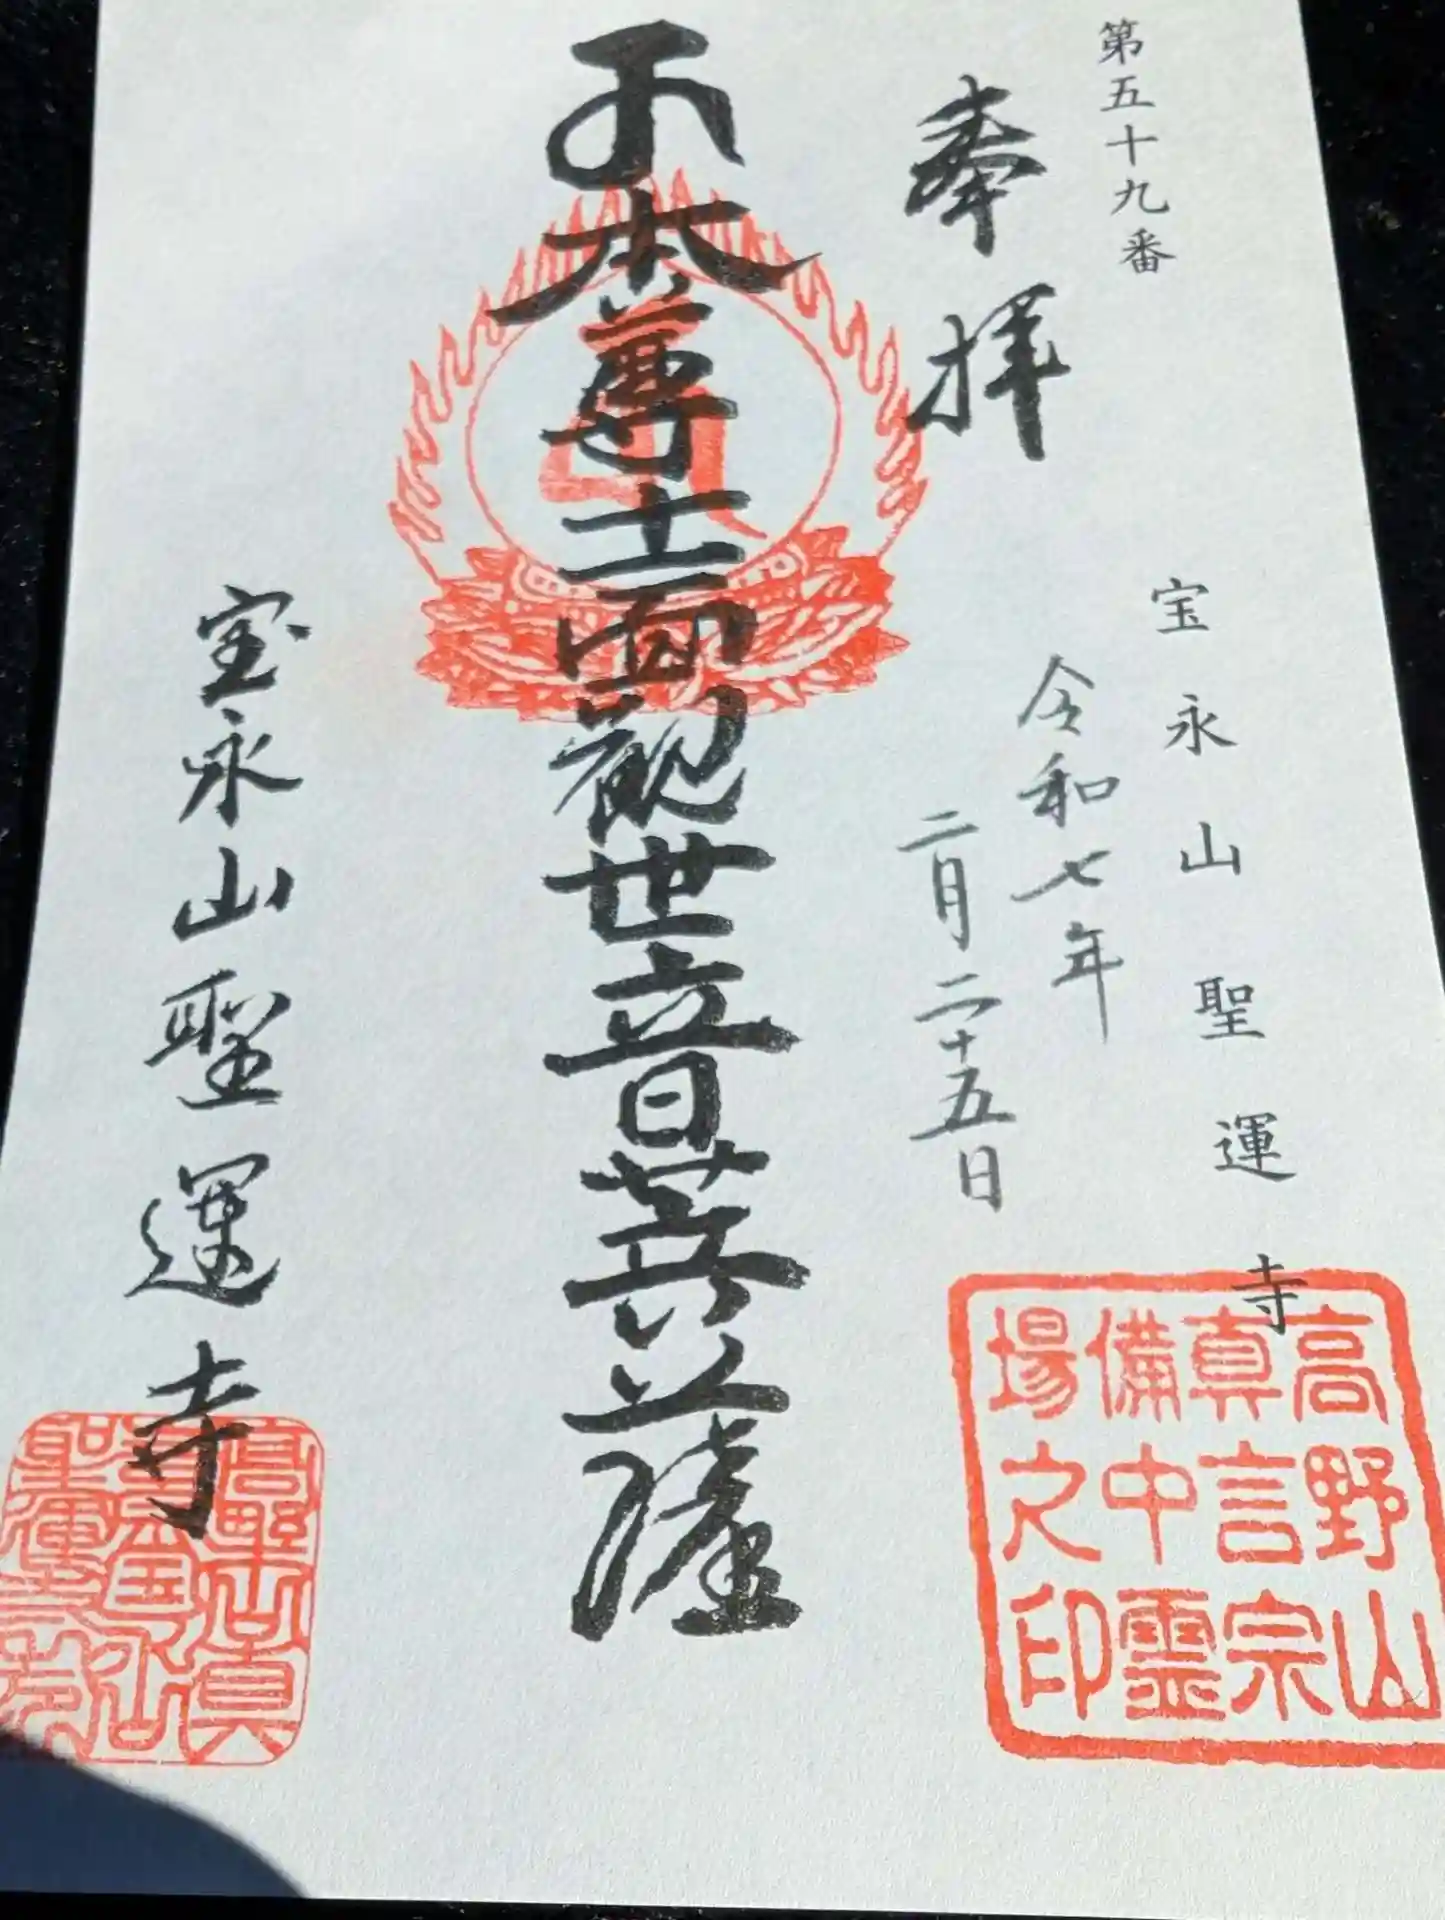 第五十九番
宝永山聖運寺
奉拝
令和七年
二月二十五日
高野山
真言宗
備中霊
場之印
本尊十一面観世音菩薩
宝永山聖運寺
高野山真